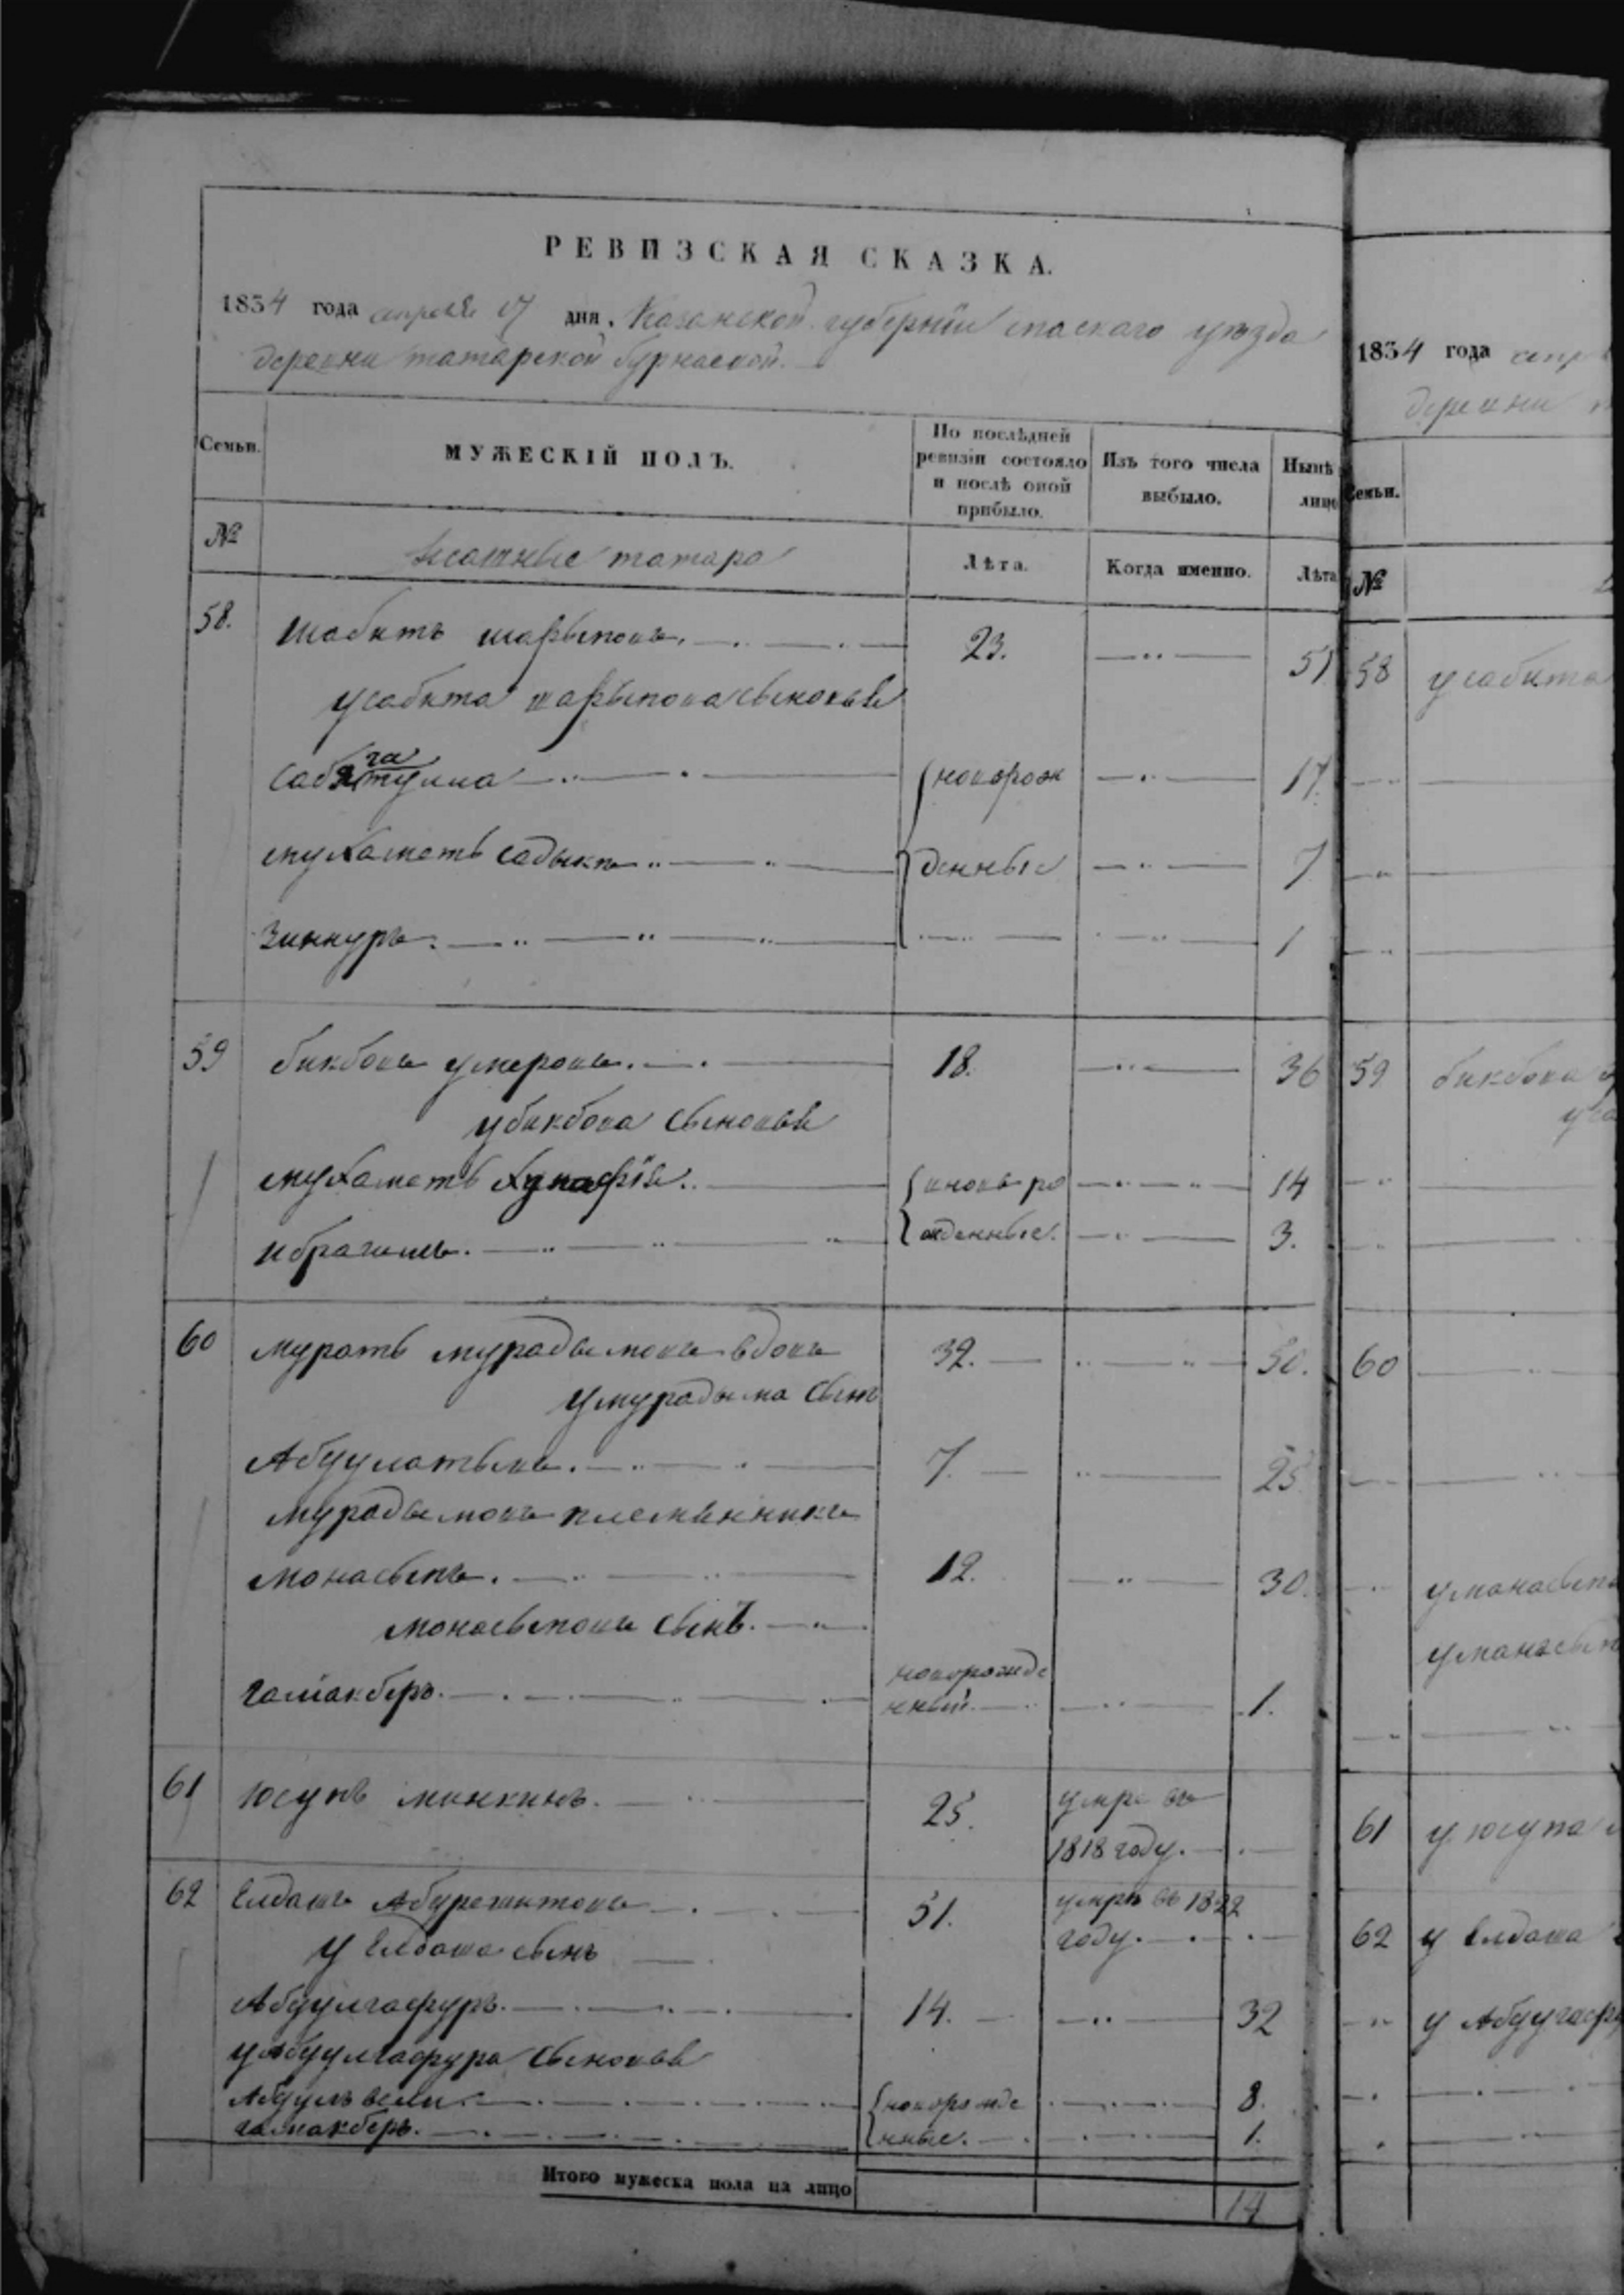 РЕВИЗСКАЯ СКАЗКА.
1834 года апреля 17 дня. Казанской губернiи спаскаго уѣзда
деревни татарской бурнаевой.
Семьи. МУЖЕСКIЙ ПОЛЪ. По послѣдней ревизiи состояло и послѣ оной прибыло. Изъ того числа выбыло. Нынѣ лицо
№ татара Лѣта. Когда именно. Лѣта
58. Шабитъ шарыповъ. 23. 51
у сабита шарыпова сыновья
сабятулла га новорож 17.
мухаметь садыкъ денные 7
Зиннуръ. 1
59 бикбовъ умеровъ. 18. 36
у бикбова сыновья
мухаметь хунафiя. вновь ро 14
ибрагимъ. жденные. 3.
60 муратъ мурадымовъ вдовъ 32. 50.
у мурадыма сынъ
Абдулатывъ. 7. 25
мурадымовъ племянникъ
монасыпъ. 12. 30.
монасыповъ сынъ.
галiакберъ. новорожде
нный. 1.
61 юсупъ минкинъ. 25. умре въ
1818 году.
62 Елдашъ Абдрешитовъ 51. умре въ 1822
у Елдаша сынъ году.
Абдулгафуръ. 14. 32
у Абдулгафура сыновья
Абдулъ вели новорожде 8.
галиакберъ. нные. 1.
Итого мужеска пола на лицо 14
1834 года
деревни
Семьи.
№
58 у сабита
59 бикбова
60
у монасып
у монасып
61 у юсупа
62 у Елдаша
у Абдулгафу